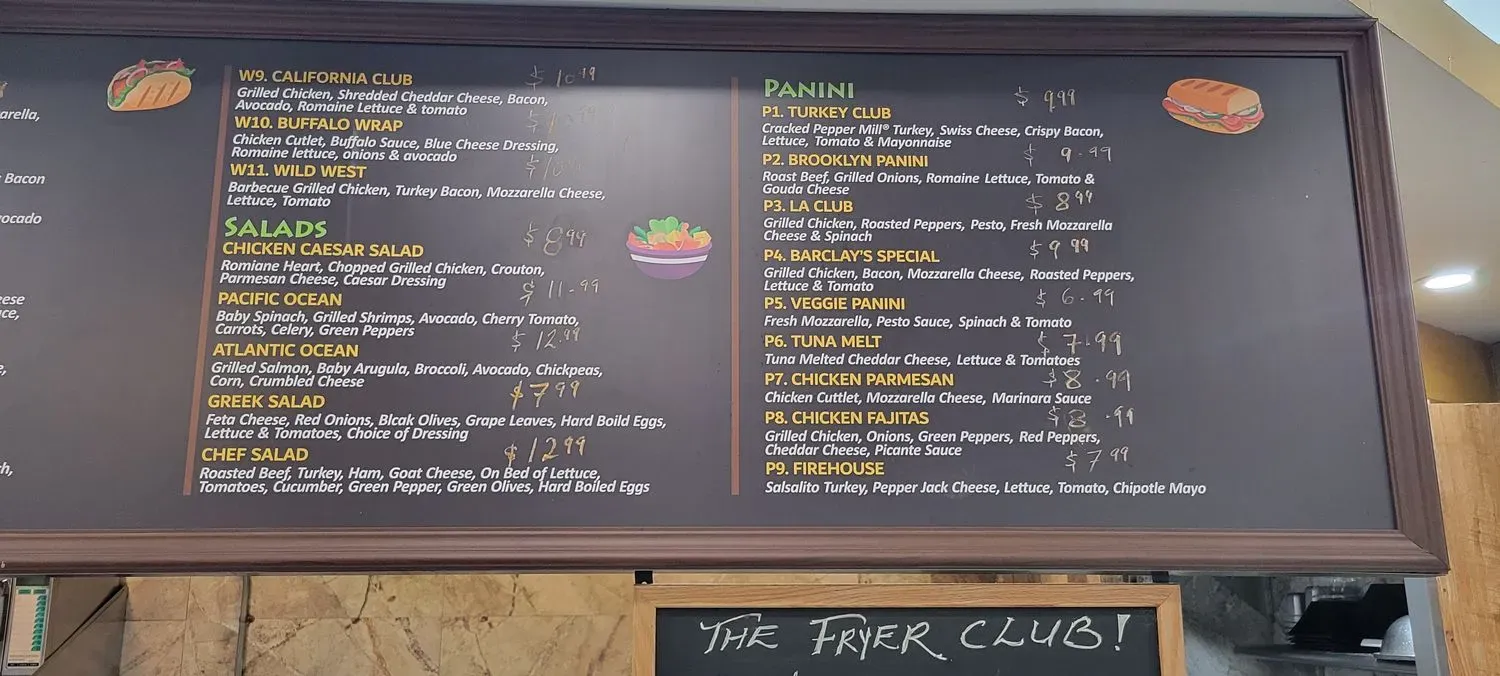 arella,
Bacon
ocado
ese
W9. CALIFORNIA CLUB $10.49
Grilled Chicken, Shredded Cheddar Cheese, Bacon,
Avocado, Romaine Lettuce & tomato
W10. BUFFALO WRAP $
Chicken Cutlet, Buffalo Sauce, Blue Cheese Dressing,
Romaine lettuce, onions & avocado
W11. WILD WEST $
Barbecue Grilled Chicken, Turkey Bacon, Mozzarella Cheese,
Lettuce, Tomato
SALADS
CHICKEN CAESAR SALAD $8.99
Romiane Heart, Chopped Grilled Chicken, Crouton,
Parmesan Cheese, Caesar Dressing
PACIFIC OCEAN $11.99
Baby Spinach, Grilled Shrimps, Avocado, Cherry Tomato,
Carrots, Celery, Green Peppers
ATLANTIC OCEAN $12.99
Grilled Salmon, Baby Arugula, Broccoli, Avocado, Chickpeas,
Corn, Crumbled Cheese
GREEK SALAD $7.99
Feta Cheese, Red Onions, Blcak Olives, Grape Leaves, Hard Boild Eggs,
Lettuce & Tomatoes, Choice of Dressing
CHEF SALAD $12.99
Roasted Beef, Turkey, Ham, Goat Cheese, On Bed of Lettuce,
Tomatoes, Cucumber, Green Pepper, Green Olives, Hard Boiled Eggs
PANINI
P1. TURKEY CLUB $9.99
Cracked Pepper Mill® Turkey, Swiss Cheese, Crispy Bacon,
Lettuce, Tomato & Mayonnaise
P2. BROOKLYN PANINI $9.99
Roast Beef, Grilled Onions, Romaine Lettuce, Tomato &
Gouda Cheese
P3. LA CLUB $8.99
Grilled Chicken, Roasted Peppers, Pesto, Fresh Mozzarella
Cheese & Spinach
P4. BARCLAY'S SPECIAL $9.99
Grilled Chicken, Bacon, Mozzarella Cheese, Roasted Peppers,
Lettuce & Tomato
P5. VEGGIE PANINI $6.99
Fresh Mozzarella, Pesto Sauce, Spinach & Tomato
P6. TUNA MELT $7.99
Tuna Melted Cheddar Cheese, Lettuce & Tomatoes
P7. CHICKEN PARMESAN $8.99
Chicken Cuttlet, Mozzarella Cheese, Marinara Sauce
P8. CHICKEN FAJITAS $8.99
Grilled Chicken, Onions, Green Peppers, Red Peppers,
Cheddar Cheese, Picante Sauce
P9. FIREHOUSE $7.99
Salsalito Turkey, Pepper Jack Cheese, Lettuce, Tomato, Chipotle Mayo
THE FRYER CLUB!